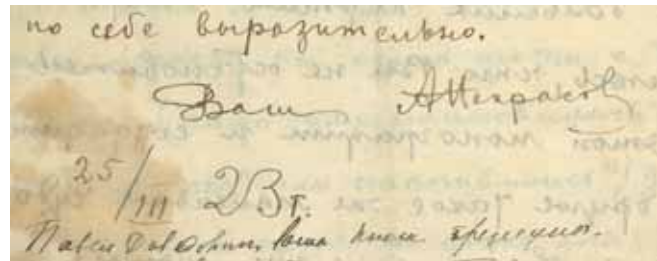 по себе выразительно.
Ваш АНекрасов
25/III 23 г.
Павел Давидович, Ваша книга